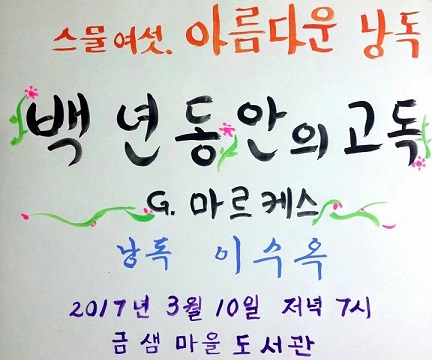 스물여섯. 아름다운 낭독
백년동안의고독
G. 마르케스
낭독 이수옥
2017년 3월 10일 저녁 7시
금샘마을도서관